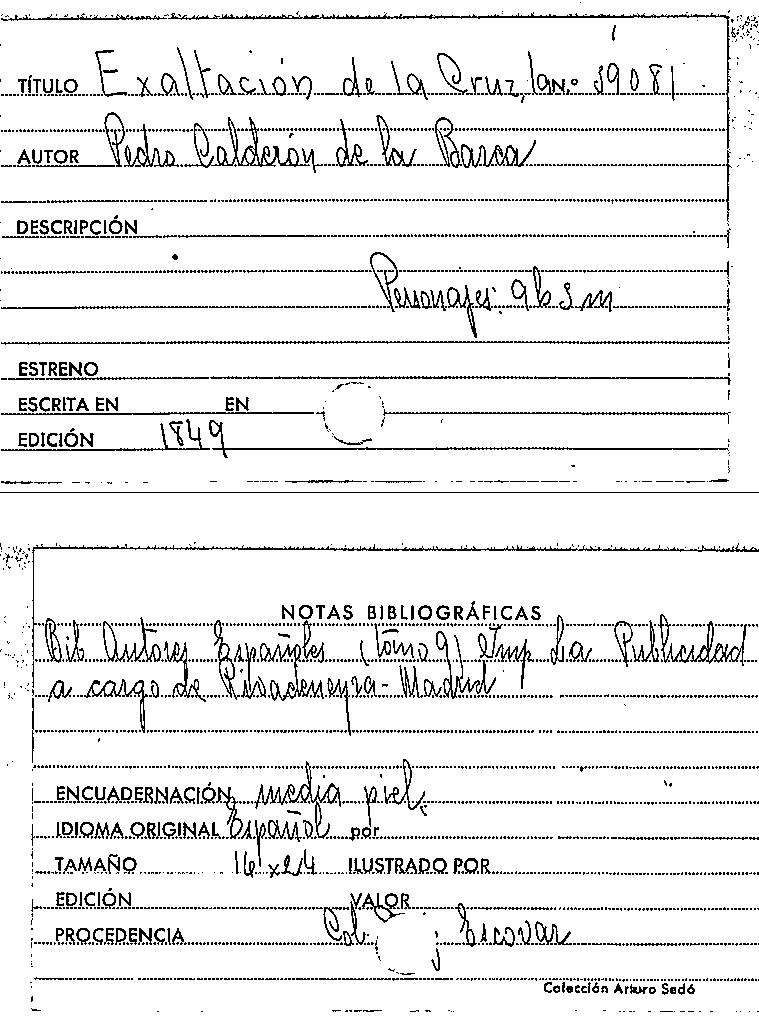 TÍTULO Exaltación de la Cruz, la N.º 39081
AUTOR Pedro Calderón de la Barca
DESCRIPCIÓN
Personajes: 9 h 3 m
ESTRENO
ESCRITA EN EN
EDICIÓN 1849
NOTAS BIBLIOGRÁFICAS
Bib Autores Españoles (tomo 9) Imp La Publicidad
a cargo de Rivadeneyra - Madrid
ENCUADERNACIÓN media piel
IDIOMA ORIGINAL Español por
TAMAÑO 16 x 24 ILUSTRADO POR
EDICIÓN VALOR
PROCEDENCIA Col. Escovar
Colección Arturo Sedó